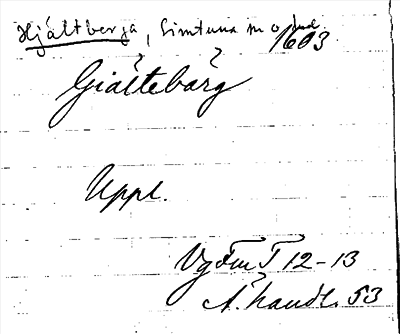 Hjältberga, Simtuna sn o hd
1603
Giältebärg
Uppl.
Vg Fm I 12-13
Ä. handl. 53